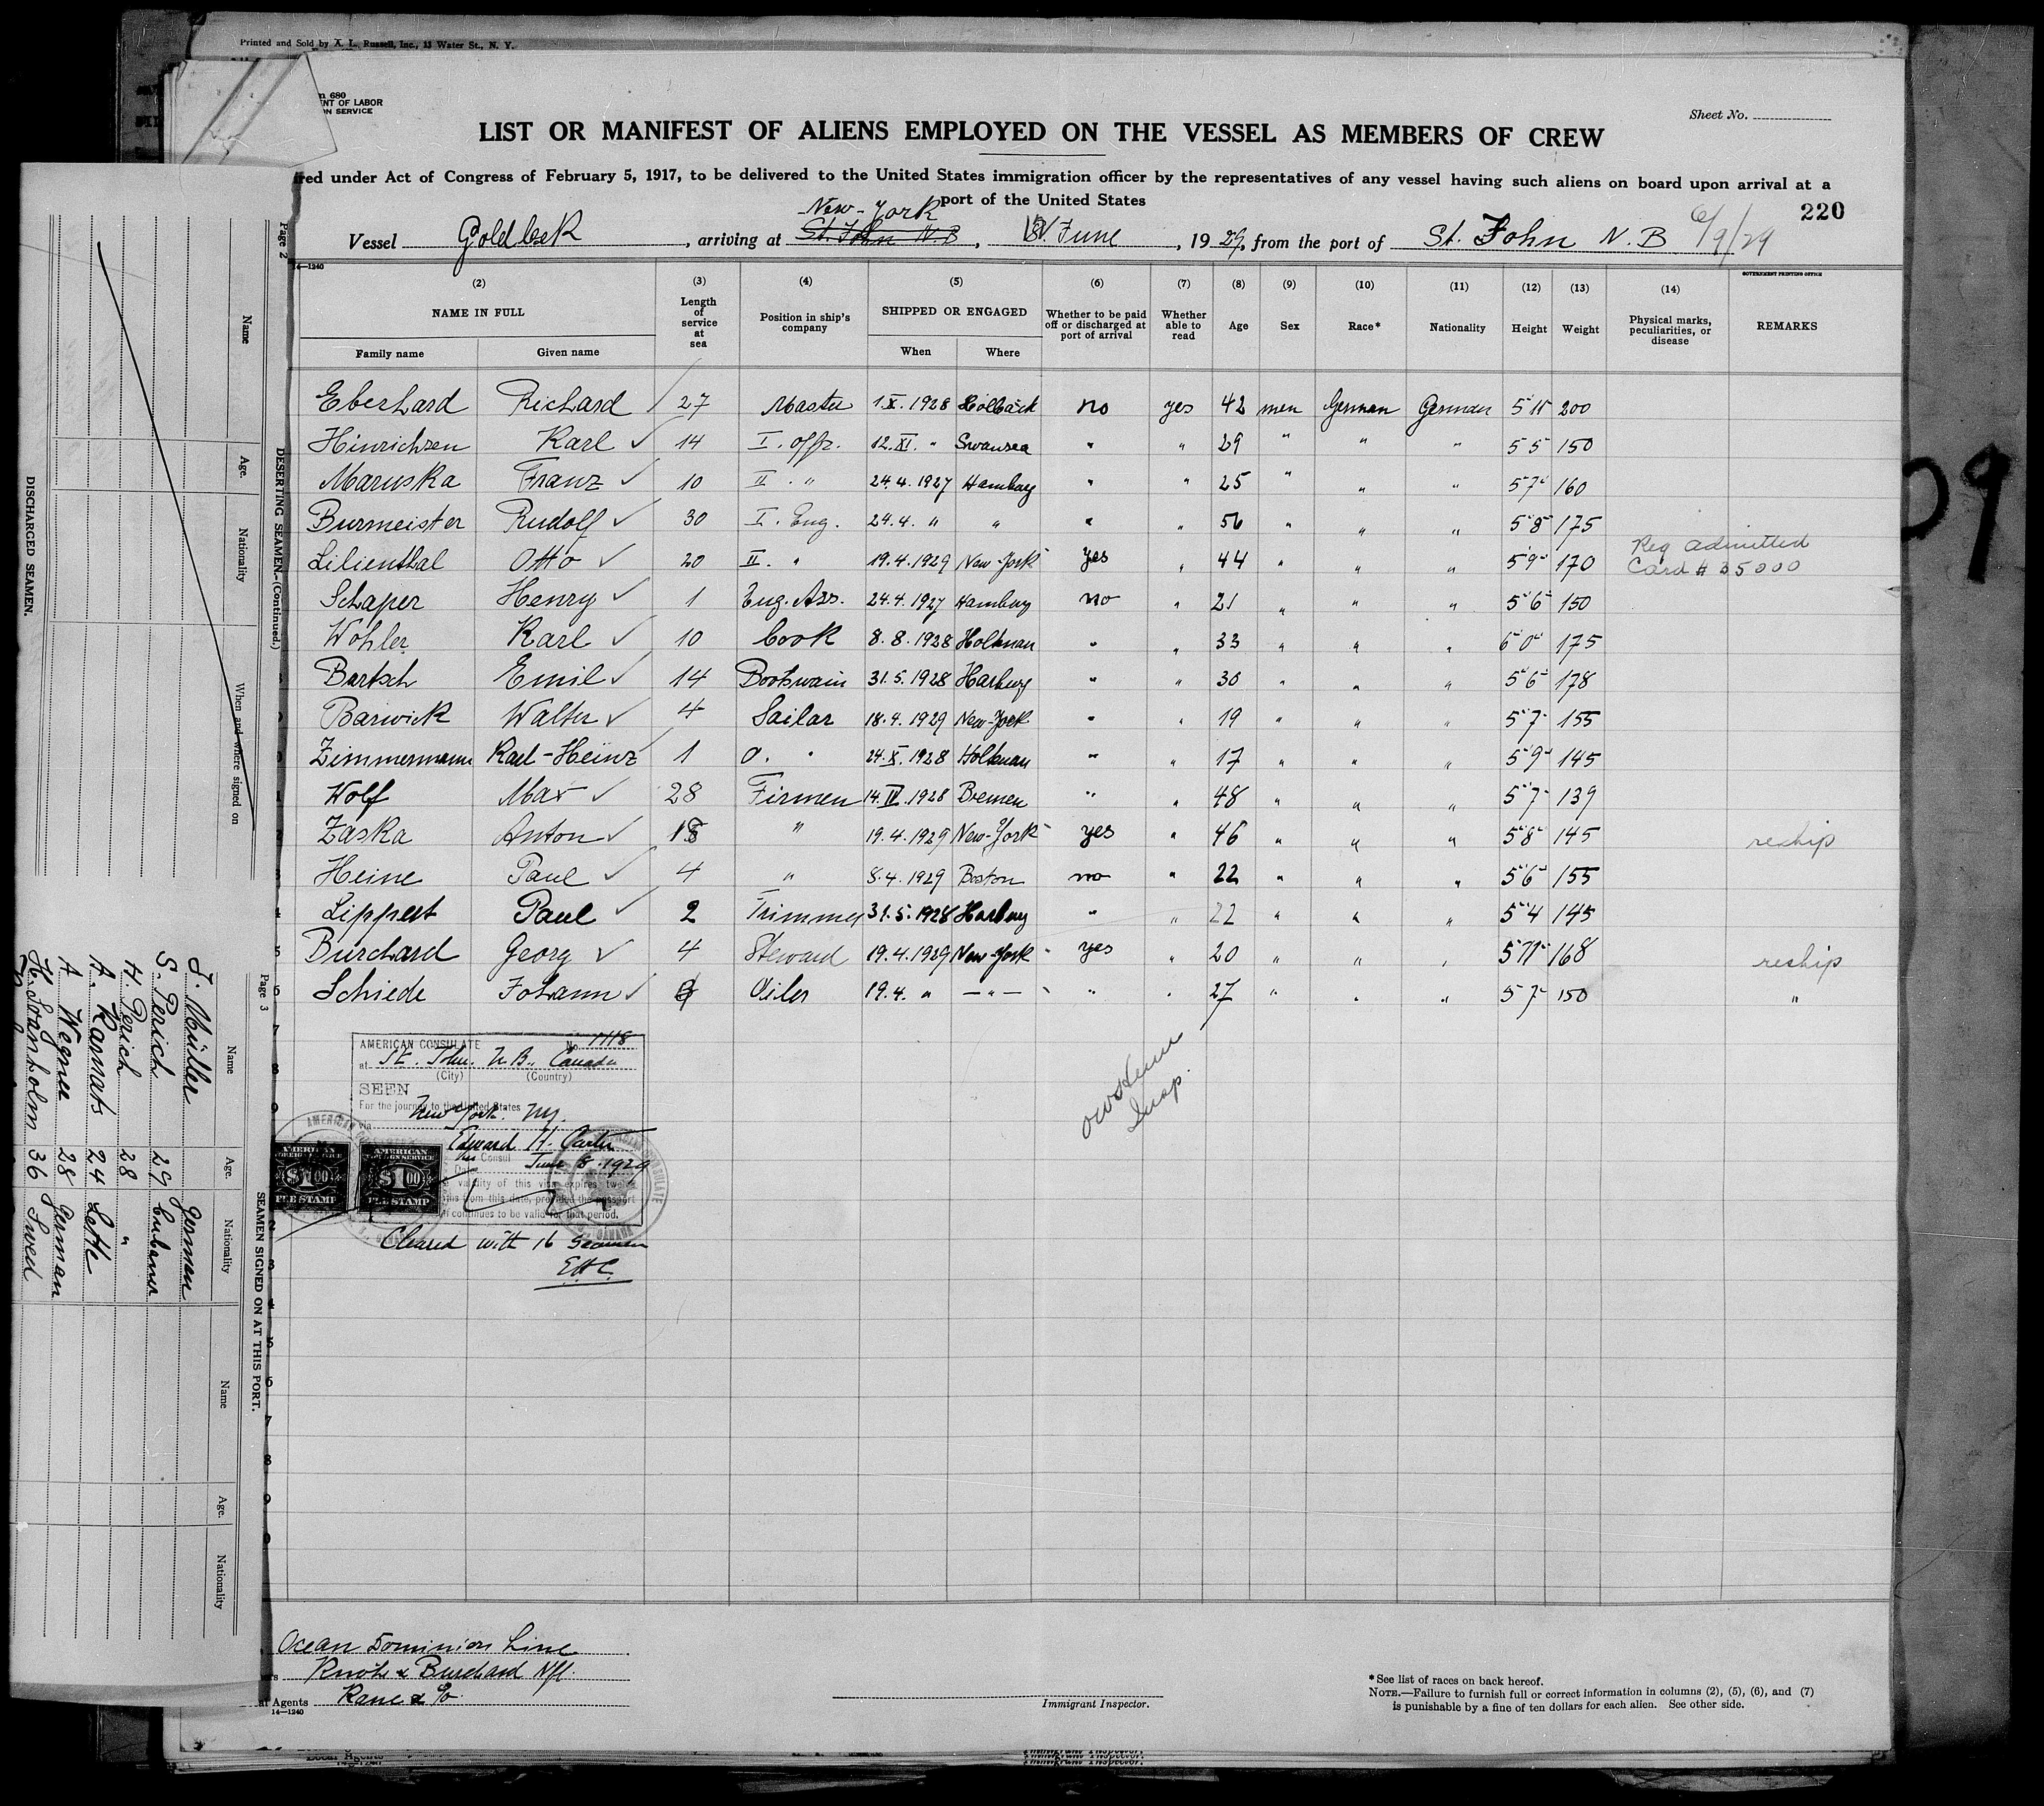 Printed and Sold by X. L. Russell, Inc., 13 Water St., N. Y.
680
NT OF LABOR
N SERVICE
Sheet No.
LIST OR MANIFEST OF ALIENS EMPLOYED ON THE VESSEL AS MEMBERS OF CREW
red under Act of Congress of February 5, 1917, to be delivered to the United States immigration officer by the representatives of any vessel having such aliens on board upon arrival at a
port of the United States
220
New-York
Vessel Goldbek, arriving at St. John N.B, June, 1929, from the port of St. John N. B 6/9/29
14—1240
GOVERNMENT PRINTING OFFICE
(2) (3) (4) (5) (6) (7) (8) (9) (10) (11) (12) (13) (14)
NAME IN FULL Length of service at sea Position in ship's company SHIPPED OR ENGAGED Whether to be paid off or discharged at port of arrival Whether able to read Age Sex Race* Nationality Height Weight Physical marks, peculiarities, or disease REMARKS
Family name Given name When Where
Eberhard Richard 27 Master 1.X.1928 Holbäck no yes 42 men German German 5"11" 200
Hinrichsen Karl 14 I. offz. 12.XI. " Swansea " " 29 " " " 5 5 150
Maruska Franz 10 II. " 24.4.1927 Hamburg " " 25 " " " 5 7 160
Burmeister Rudolf 30 I. Eng. 24.4. " " " " 56 " " " 5"8" 175
Lilienthal Otto 20 II. " 19.4.1929 New-York yes " 44 " " " 5"9" 170 Reg admitted Card # 35000
Schaper Henry 1 Eug. Ass. 24.4.1927 Hamburg no " 21 " " " 5"6" 150
Wohler Karl 10 Cook 8.8.1928 Holtenau " " 33 " " " 6"0" 175
Bartsch Emil 14 Bootswain 31.5.1928 Harburg " " 30 " " " 5"6" 178
Barwick Walter 4 Sailor 18.4.1929 New-York " " 19 " " " 5"7" 155
Zimmermann Karl-Heinz 1 O. " 24.X.1928 Holtenau " " 17 " " " 5"9" 145
Wolf Max 28 Firmen 14.IV.1928 Bremen " " 48 " " " 5"7" 139
Zaska Anton 18 " 19.4.1929 New-York yes " 46 " " " 5"8" 145 reship
Heine Paul 4 " 8.4.1929 Boston no " 22 " " " 5"6" 155
Lippert Paul 2 Trimmer 31.5.1928 Harburg " " 22 " " " 5"4 145
Burchard Georg 4 Steward 19.4.1929 New-York yes " 20 " " " 5"11" 168 reship
Schiede Johann Oiler 19.4. " —"— " " 27 " " " 5 7 150 "
AMERICAN CONSULATE No. 1118
at St. John. N.B., Canada
(City) (Country)
SEEN
For the journey to the United States
via New York. N.Y.
Edward H. Carter
Consul
Date June 8.1929
validity of this visa expires twelve
from this date, provided the passport
continues to be valid for that period.
AMERICAN
$1.00
FEE STAMP
AMERICAN
FOREIGN SERVICE
$1.00
FEE STAMP
Cleared with 16 Seamen
EHC.
Insp.
Ocean Dominion Line
Knöhr & Burchard Nfl.
Agents Kane & Co.
14—1240
Immigrant Inspector.
*See list of races on back hereof.
NOTE.—Failure to furnish full or correct information in columns (2), (5), (6), and (7)
is punishable by a fine of ten dollars for each alien. See other side.
Local Agents
Immigrant Inspector.
Page 2
DESERTING SEAMEN—(Continued.)
Name Age. Nationality When and where signed on
DISCHARGED SEAMEN.
Page 3
SEAMEN SIGNED ON AT THIS PORT.
Name Age. Nationality Name Age. Nationality
J. Müller German
S. Perich 29 Cubaner
H. Perich 28 "
A. Karnats 24 Lette
A Wegner 28 German
H. Svanholm 36 Swed
09